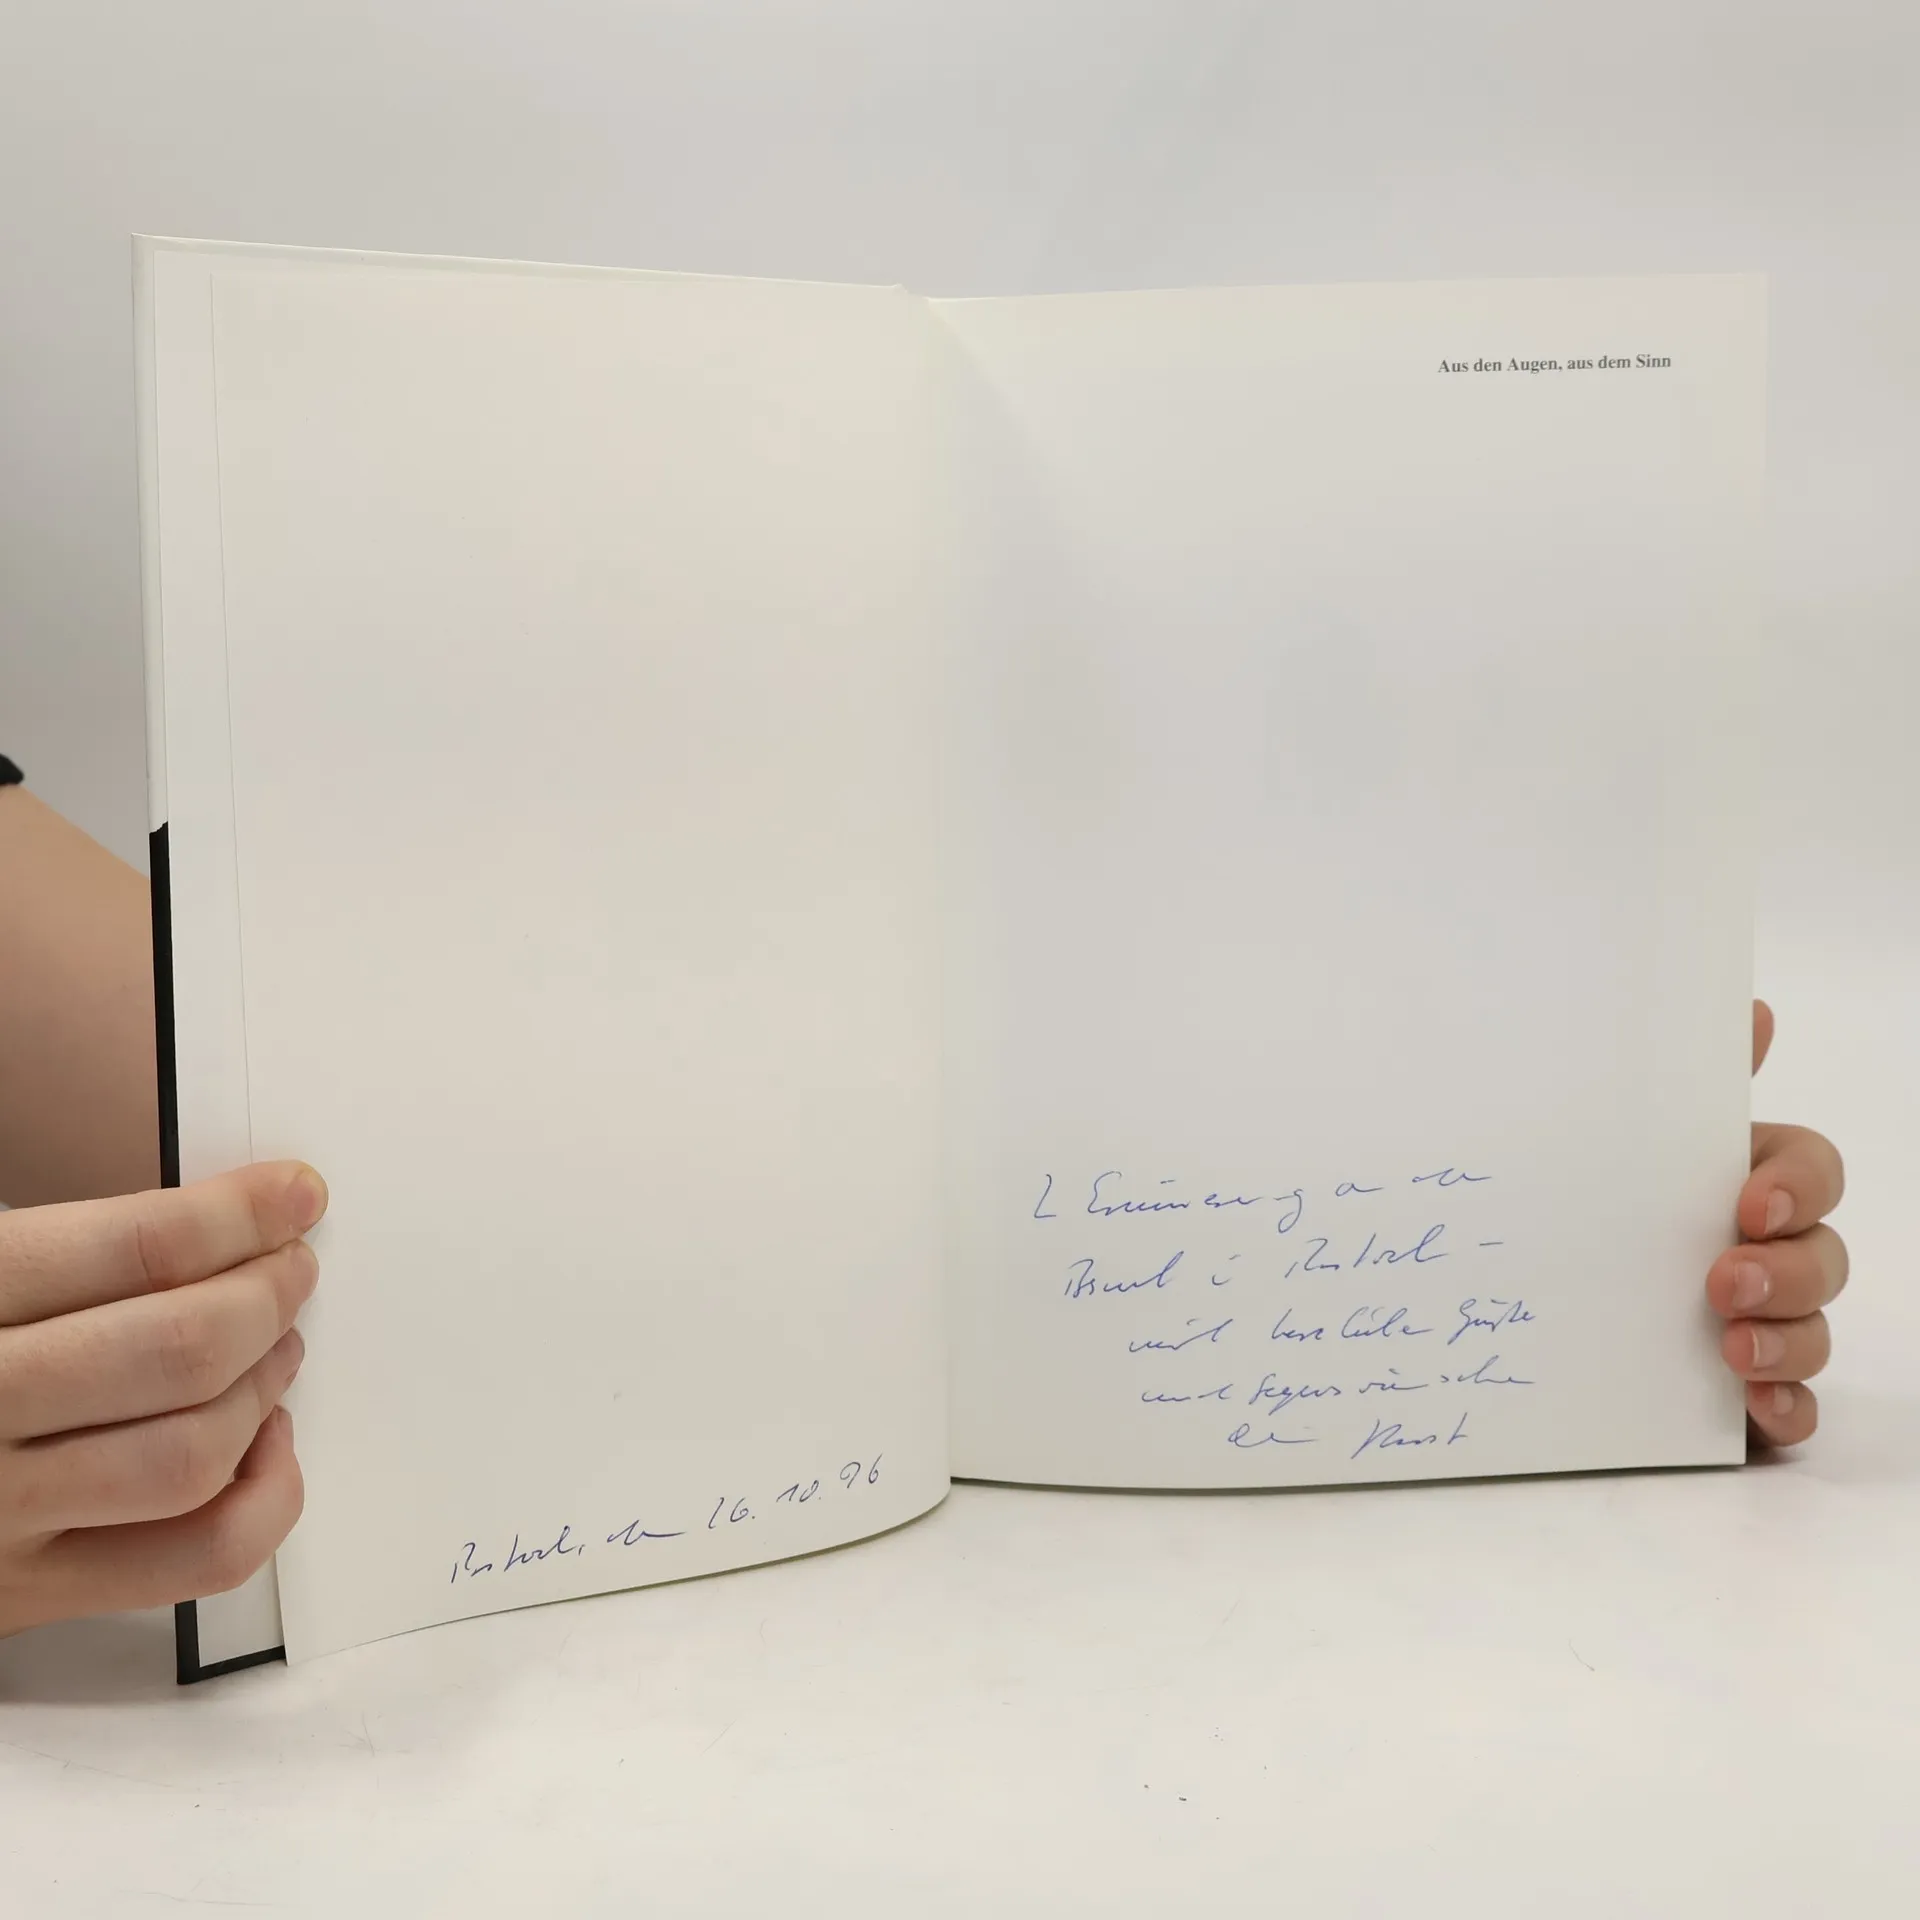 Rostock, den 26.10.96
Aus den Augen, aus dem Sinn
Z Erinnerung an den
Besuch in Rostock –
mit herzlichen Grüßen
und Segenswünschen